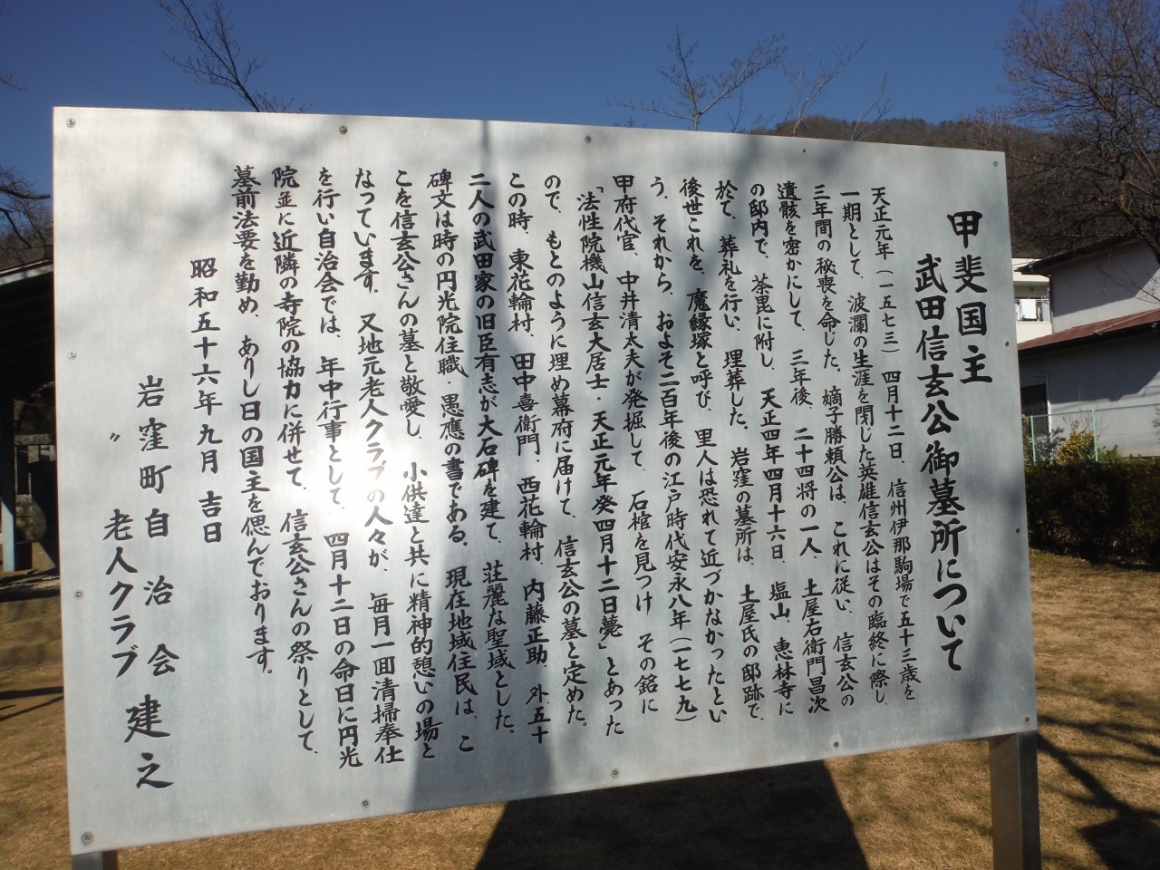 甲斐国主
武田信玄公御墓所について
天正元年(一五七三)四月十二日、信州伊那駒場で五十三歳を
一期として、波瀾の生涯を閉じた英雄信玄公はその臨終に際し
三年間の秘喪を命じた。嫡子勝頼公は、これに従い、信玄公の
遺骸を密かにして、三年後、二十四将の一人、土屋右衛門昌次
の邸内で、荼毘に附し、天正四年四月十六日、塩山、恵林寺に
於て、葬礼を行い、埋葬した。岩窪の墓所は、土屋氏の邸跡で、
後世これを、魔縁塚と呼び、里人は恐れて近づかなかったとい
う、それから、およそ二百年後の江戸時代安永八年(一七七九)
甲府代官、中井清太夫が発掘して、石棺を見つけ その銘に
「法性院機山信玄大居士・天正元年癸四月十二日薨」とあった
ので、もとのように埋め幕府に届けて、信玄公の墓と定めた。
この時、東花輪村、田中喜衛門、西花輪村、内藤正助、外五十
二人の武田家の旧臣有志が大石碑を建て、荘麗な聖域とした。
碑文は時の円光院住職・愚應の書である。現在地域住民は、こ
こを信玄公さんの墓と敬愛し、小供達と共に精神的憩いの場と
なっています。又地元老人クラブの人々が、毎月一回清掃奉仕
を行い自治会では、年中行事として、四月十二日の命日に円光
院並に近隣の寺院の協力に併せて、信玄公さんの祭りとして、
墓前法要を勤め、ありし日の国主を偲んでおります。
昭和五十六年九月 吉日
岩窪町自治会
〃 老人クラブ 建之